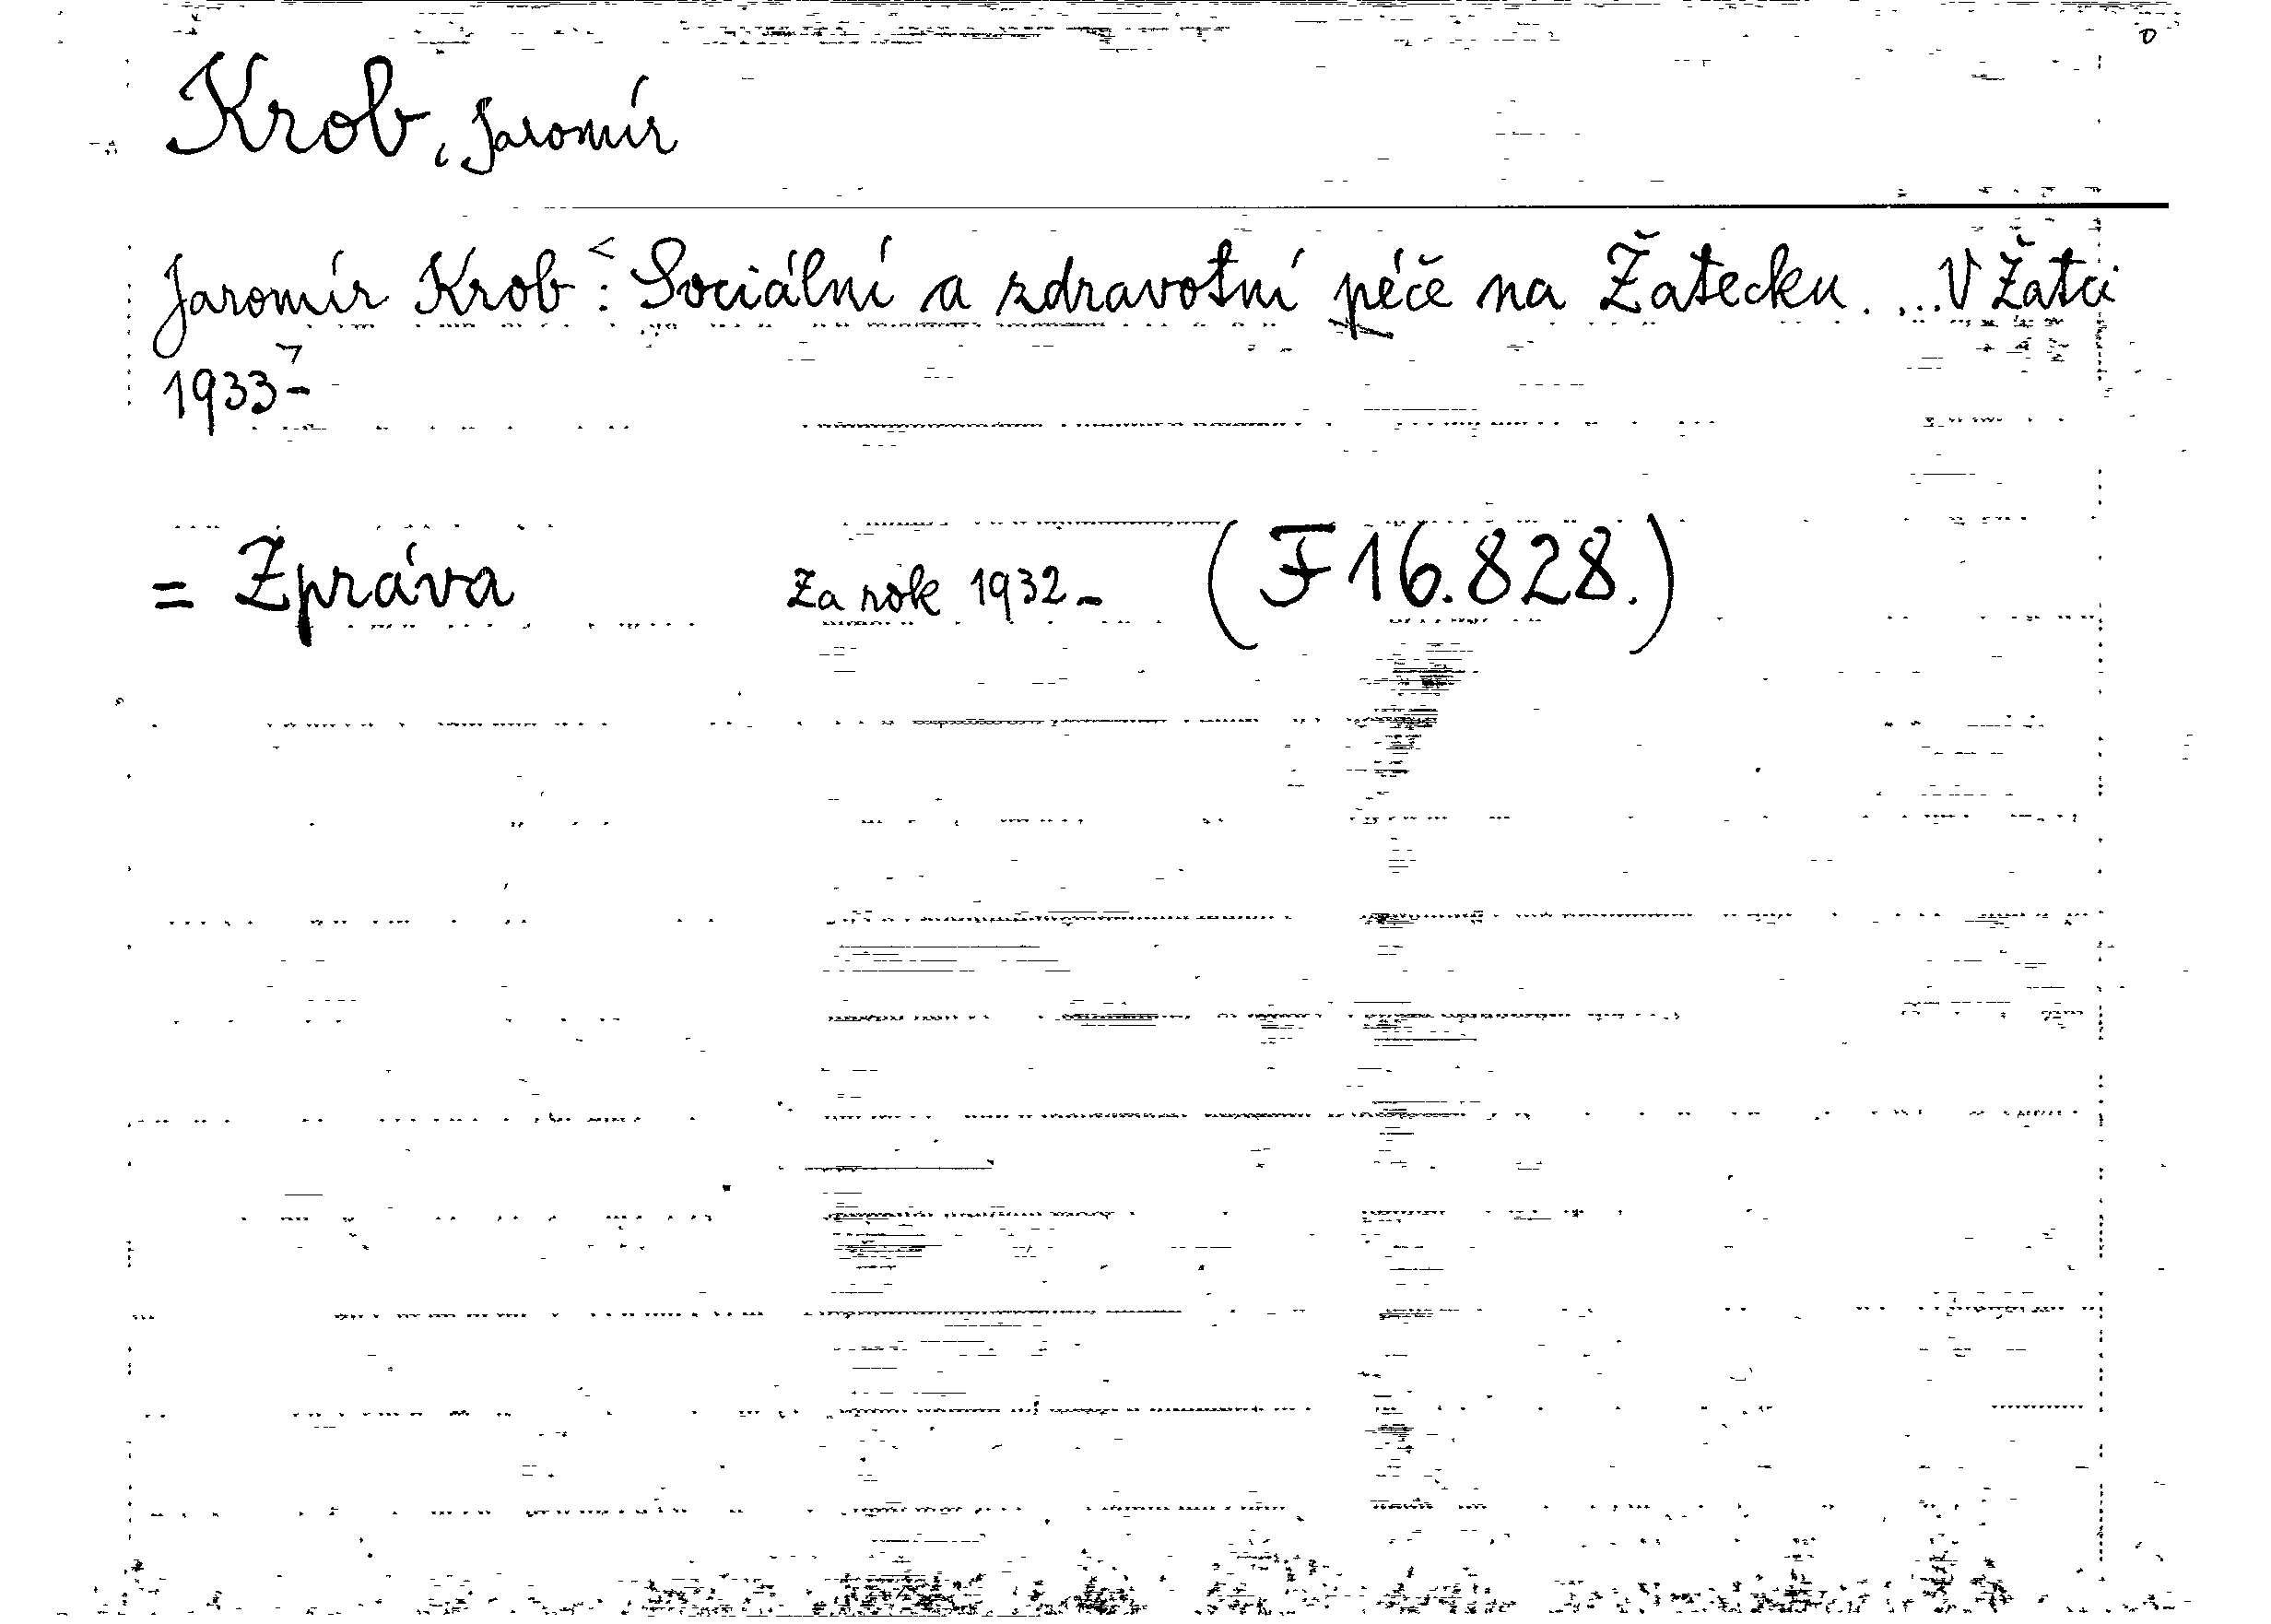 Krob, Jaromír
Jaromír Krob <: Sociální a zdravotní péče na Žatecku. ...V Žatci
1933 >-
= Zpráva za rok 1932- (F 16.828.)